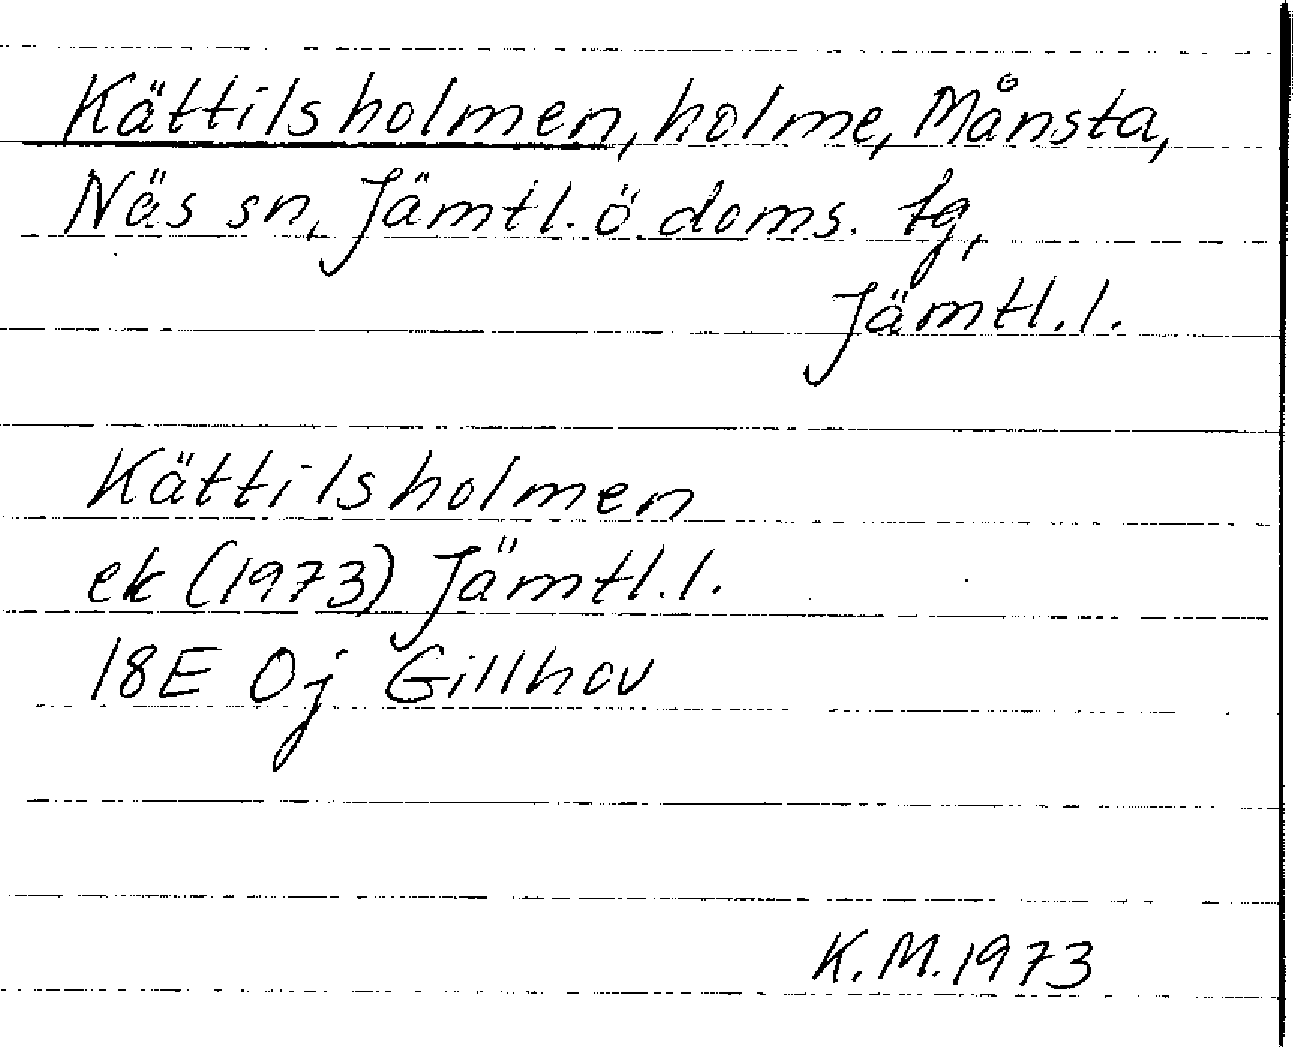 Kättilsholmen, holme, Månsta,
Näs sn, Jämtl. ö. doms. tg,
Jämtl. l.
Kättilsholmen
ek (1973) Jämtl. l.
18E 0j Gillhov
K. M. 1973